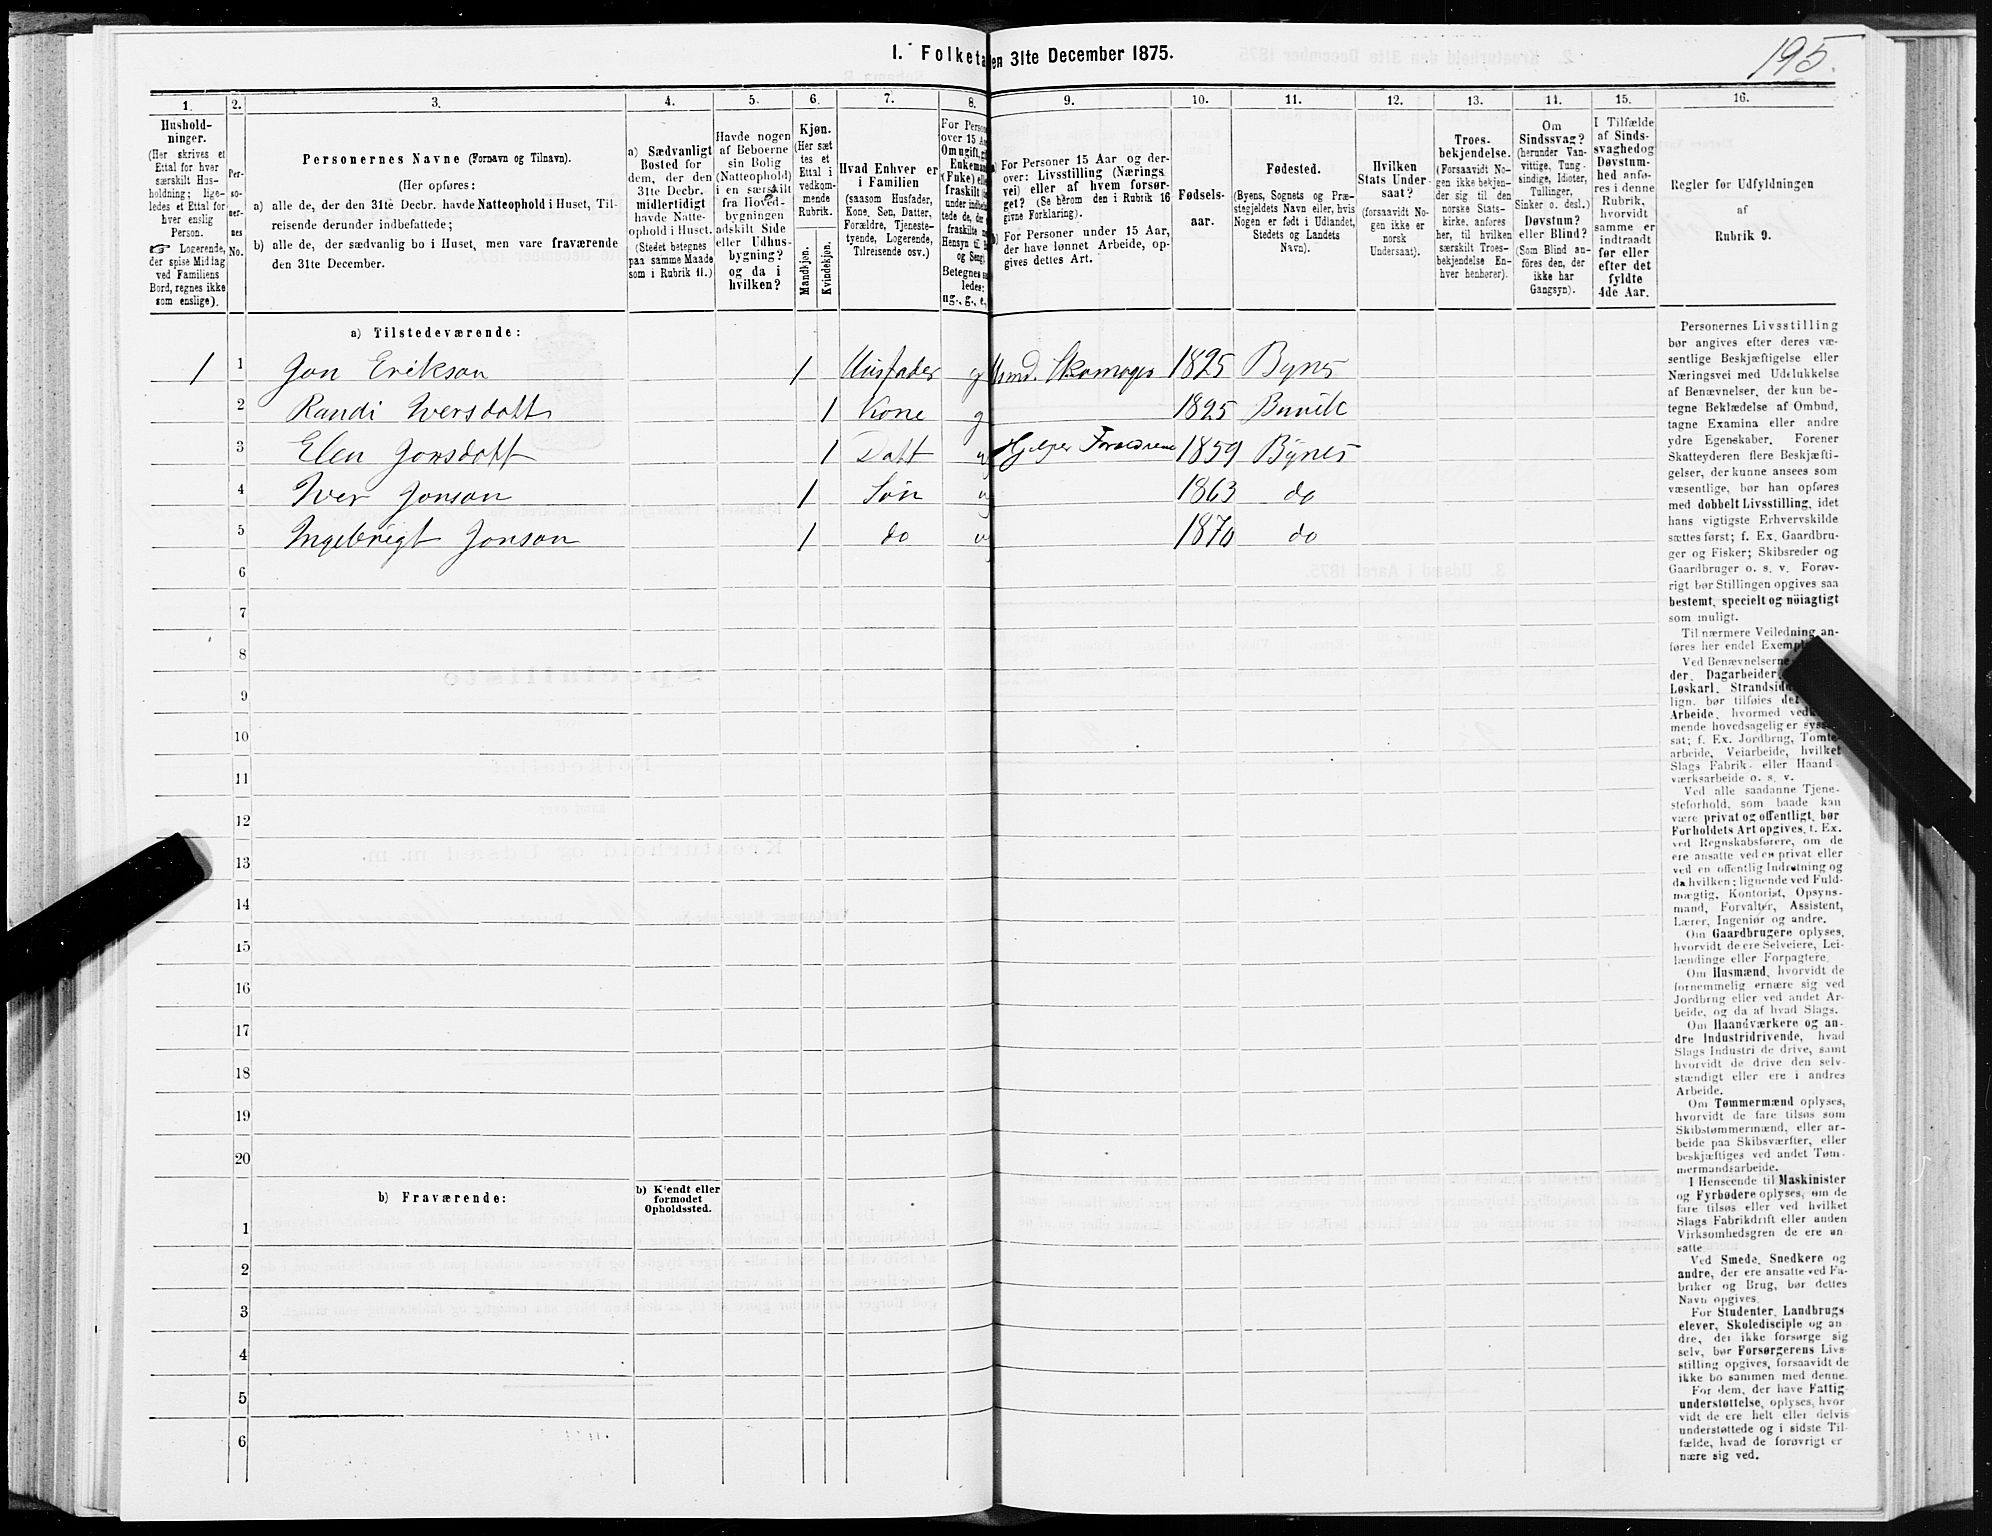 195.
1. Folketa en 31te December 1875.
1. 2. 3. 4. 5. 6. 7. 8. 9. 10. 11. 12. 13. 14. 15. 16.
Hushold-
ninger.
(Her skrives et
Ettal for hver
særskilt Hus-
holdning; lige-
ledes et Ettal for
hver enslig
Person.
☞ Logerende,
der spise Middag
ved Familiens
Bord, regnes ikke
som enslige).
Per-
so-
ner-
nes
No.
Personernes Navne (Fornavn og Tilnavn).
(Her opføres:
a) alle de, der den 31te Decbr. havde Natteophold i Huset, Til-
reisende derunder indbefattede;
b) alle de, der sædvanlig bo i Huset, men vare fraværende
den 31te December.
a) Sædvanligt
Bosted for
dem, der den
31te Decbr.
midlertidigt
havde Natte-
ophold i Huset.
(Stedet betegnes
paa samme Maade
som i Rubrik 11.)
Havde nogen
af Beboerne
sin Bolig
(Natteophold)
i en særskilt
fra Hoved-
bygningen
adskilt Side
eller Udhus-
bygning?
og da i
hvilken?
Kjøn.
(Her sæt
tes et
Ettal i
vedkom-
mende
Rubrik.
Mandkjøn.
Kvindekjøn.
Hvad Enhver er
i Familien
(saasom Husfader,
Kone, Søn, Datter,
Forældre, Tjeneste-
tyende, Logerende,
Tilreisende osv.)
For Person
over 15 Aar
Om ugift, g
Enkeman
(Fuke) ell
fraskilt
under indbef
tede de, der
fraskilte
Hensyn til
og Seng).
Betegnes sa
ledes:
ug., g., e.,
a) For Personer 15 Aar og der-
over: Livsstilling (Nærings
vei) eller af hvem forsør-
get? (Se herom den i Rubrik 16
givne Forklaring).
b) For Personer under 15 Aar,
der have lønnet Arbeide, op-
gives dettes Art.
Fødsels-
aar.
Fødested.
(Byens, Sognets og Præ-
stegjeldets Navn eller, hvis
Nogen er født i Udlandet,
Stedets og Landets
Navn).
Hvilken
Stats Under-
saat?
(forsaavidt No-
gen ikke er
norsk
Undersaat).
Troes-
bekjendelse.
(Forsaavidt No-
gen ikke bekjen-
der sig til den
norske Stats-
kirke, anføres
her, til hvilken
særskilt Troes-
bekjendelse En-
hver henhører).
Om
Sindssvag?
(herunder Van-
vittige, Tung-
sindige, Idioter,
Tullinger,
Sinker o. desl.)
Døvstum?
eller Blind?
(Som Blind an-
føres den, der
ikke har
Gangsyn).
I Tilfælde
af Sinds-
svaghed og
Døvstum-
hed anfø-
res i denne
Rubrik,
hvorvidt
samme er
indtraadt
før eller
efter det
fyldte
4de Aar.
Regler for Udfyldningen
af
Rubrik 9.
a) Tilstedeværende:
1 1 Jon Erikson 1 Husfader g Husmd. Skomager 1825 Bynes
2 Randi Iversdatt 1 Kone g 1825 Buvik
3 Elen Jonsdatt 1 Datt Hjelper Forældrene 1859 Bynes
4 Iver Jonson 1 Søn 1863 do
5 Ingebrigt Jonson 1 do 1870 do
6
7
8
9
10
11
12
13
14
15
16
17
18
19
20
b) Fraværende:
b) Kjendt eller
formodet
Opholdssted.
1
2
3
4
5
6
Personernes Livsstilling
bør angives efter deres væ-
sentlige Beskjæftigelse eller
Næringsvei med Udelukkelse
af Benævnelser, der kun be-
tegne Beklædelse af Ombud,
tagne Examina eller andre
ydre Egenskaber. Forener
Skatteyderen flere Beskjæfti-
gelser, der kunne ansees som
væsentlige, bør han opføres
med dobbelt Livsstilling, idet
hans vigtigste Erhvervskilde
sættes først; f. Ex. Gaardbru-
ger og Fisker; Skibsreder og
Gaardbruger o. s. v. Forøv-
rigt bør Stillingen opgives saa
bestemt, specielt og nöiagtigt
som muligt.
Til nærmere Veiledning an-
føres her endel Exemp
Ved Benævnelserne
der, Dagarbeider
Løskarl, Strandsid
lign. bør tilføies det
Arbeide, hvormed vedk
mende hovedsagelig er syss
sat; f. Ex. Jordbrug, Tomte-
arbeide, Veiarbeide, hvilket
Slags Fabrik- eller Haand-
værksarbeide o. s. v.
Ved alle saadanne Tjene-
steforhold, som baade kan
være privat og offentligt, bør
Forholdets Art opgives, t. Ex.
ved Regnskabsførere, om de
ere ansatte ved en privat eller
ved en offentlig Indretning og
da hvilken; lignende ved Fuld-
mægtig, Kontorist, Opsyns-
mand, Forvalter, Assistent,
Lærer, Ingeniør og andre.
Om Gaardbrugere oplyses,
hvorvidt de ere Selveiere, Lei-
lændinge eller Forpagtere.
Om Husmænd, hvorvidt de
fornemmelig ernære sig ved
Jordbrug eller ved andet Ar-
beide, og da af hvad Slags.
Om Haandværkere og an-
dre Industridrivende, hvad
Slags Industri de drive, samt
hvorvidt de drive den selv-
stændigt eller ere i andres
Arbeide.
Om Tømmermænd oplyses,
hvorvidt de fare tilsøs som
Skibstømmermænd, eller ar-
beide paa Skibsværfter, eller
beskjæftiges ved andet Tøm-
mermandsarbeide.
I Henseende til Maskinister
og Fyrbødere oplyses, om de
fare tilsøs eller ved hvilket
Slags Fabrikdrift eller anden
Virksomhedsgren de ere an-
satte
Ved Smede, Snedkere og
andre, der ere ansatte ved Fa-
briker og Brug, bør dettes
Navn opgives.
For Studenter, Landbrugs
elever, Skoledisciple og an-
dre, der ikke forsørge sig
selv, bør Forsørgerens Livs-
stilling opgives, forsaavidt de
ikke bo sammen med denne.
For dem, der have Fattig
understøttelse, oplyses, hvor
vidt de ere helt eller delvis
understøttede og i sidste Til-
fælde, hvad de forøvrigt er
nære sig ved.